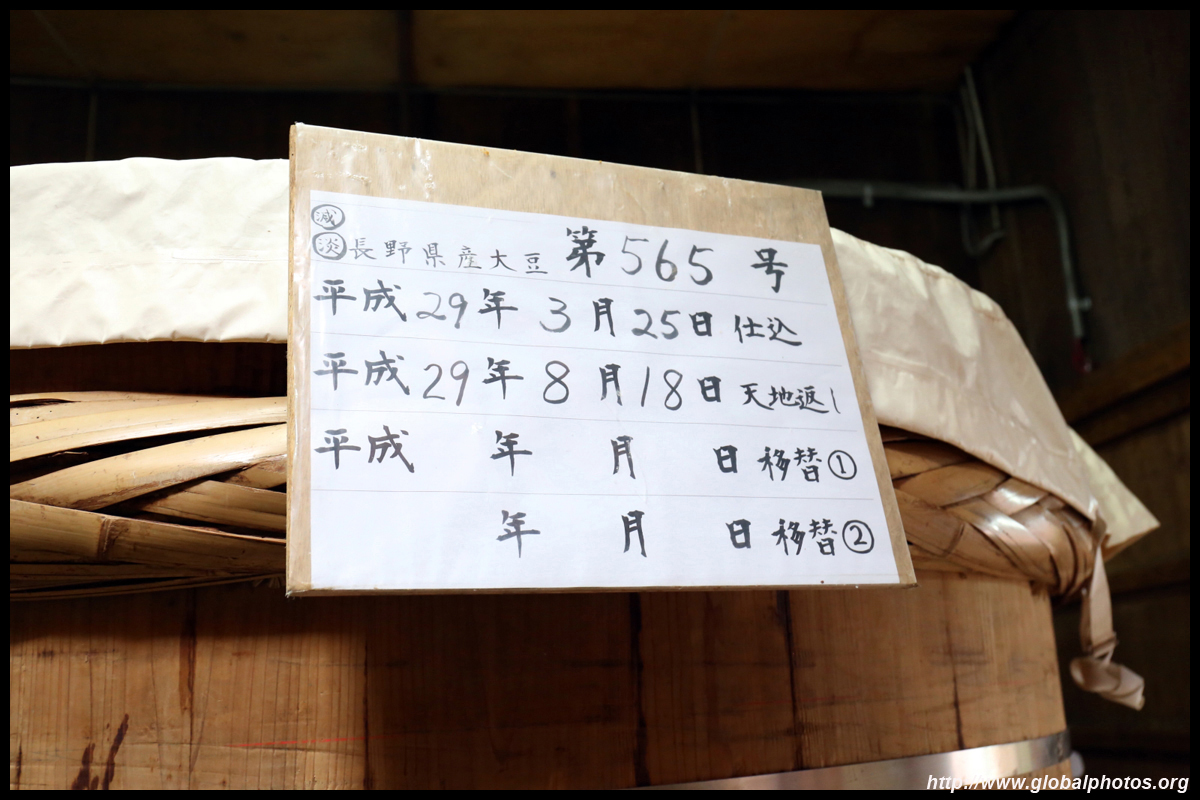 減
淡 長野県産大豆 第565号
平成29年3月25日 仕込
平成29年8月18日 天地返し
平成 年 月 日 移替①
年 月 日 移替②
http://www.globalphotos.org